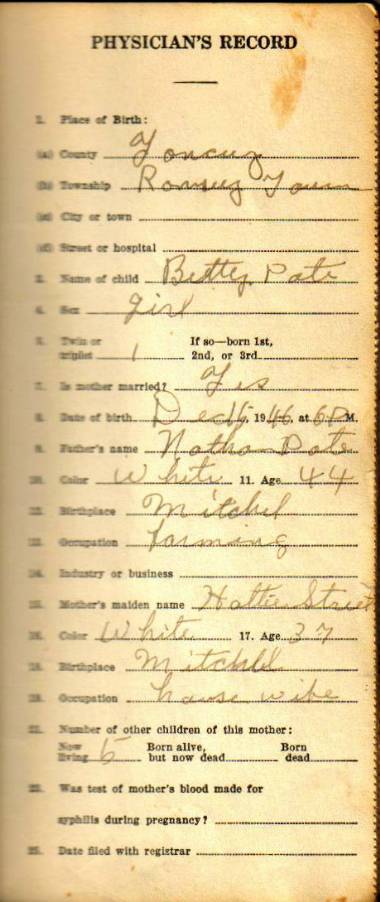 PHYSICIAN'S RECORD
1. Place of Birth:
(a) County Yancuy
(b) Township Ramsey Town
(c) City or town
(d) Street or hospital
3. Name of child Betty Pate
4. Sex girl
5. Twin or triplet 1 If so—born 1st, 2nd, or 3rd
7. Is mother married? Yes
8. Date of birth Dec 15, 1946 at 6 P M.
9. Father's name Nathan Pate
10. Color White 11. Age 44
12. Birthplace Mitchel
13. Occupation farming
14. Industry or business
15. Mother's maiden name Hattie Street
16. Color White 17. Age 37
18. Birthplace Mitchell
19. Occupation house wife
21. Number of other children of this mother:
Now living 5 Born alive, but now dead Born dead
22. Was test of mother's blood made for
syphilis during pregnancy?
23. Date filed with registrar